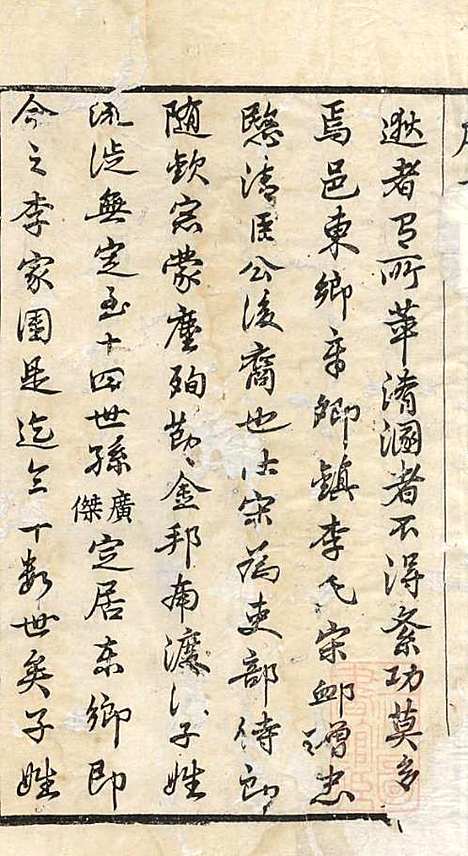 逖者有所萃淆溷者不得紊功莫多
焉邑東鄉章卿鎮李氏宋卹贈忠
愍清臣公後裔也仕宋為吏部侍郎
随欽宗蒙塵殉節金邦南渡以子姓
流徙無定至十四世孫廣傑定居东鄉即
今之李家園是迄今十数世矣子姓